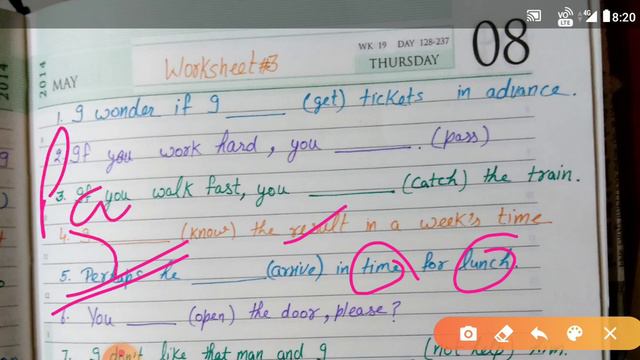 4G 8:20
VO LTE
2014
2014
MAY
Worksheet #3
WK 19 DAY 128-237
THURSDAY
08
1. I wonder if I ______ (get) tickets in advance.
2. If you work hard, you ______. (pass)
3. If you walk fast, you ______ (catch) the train.
4. I ______ (know) the result in a week's time
5. Perhaps he ______ (arrive) in time for lunch.
6. You ______ (open) the door, please?
7. I don't like that man and I ______ (not help) him.